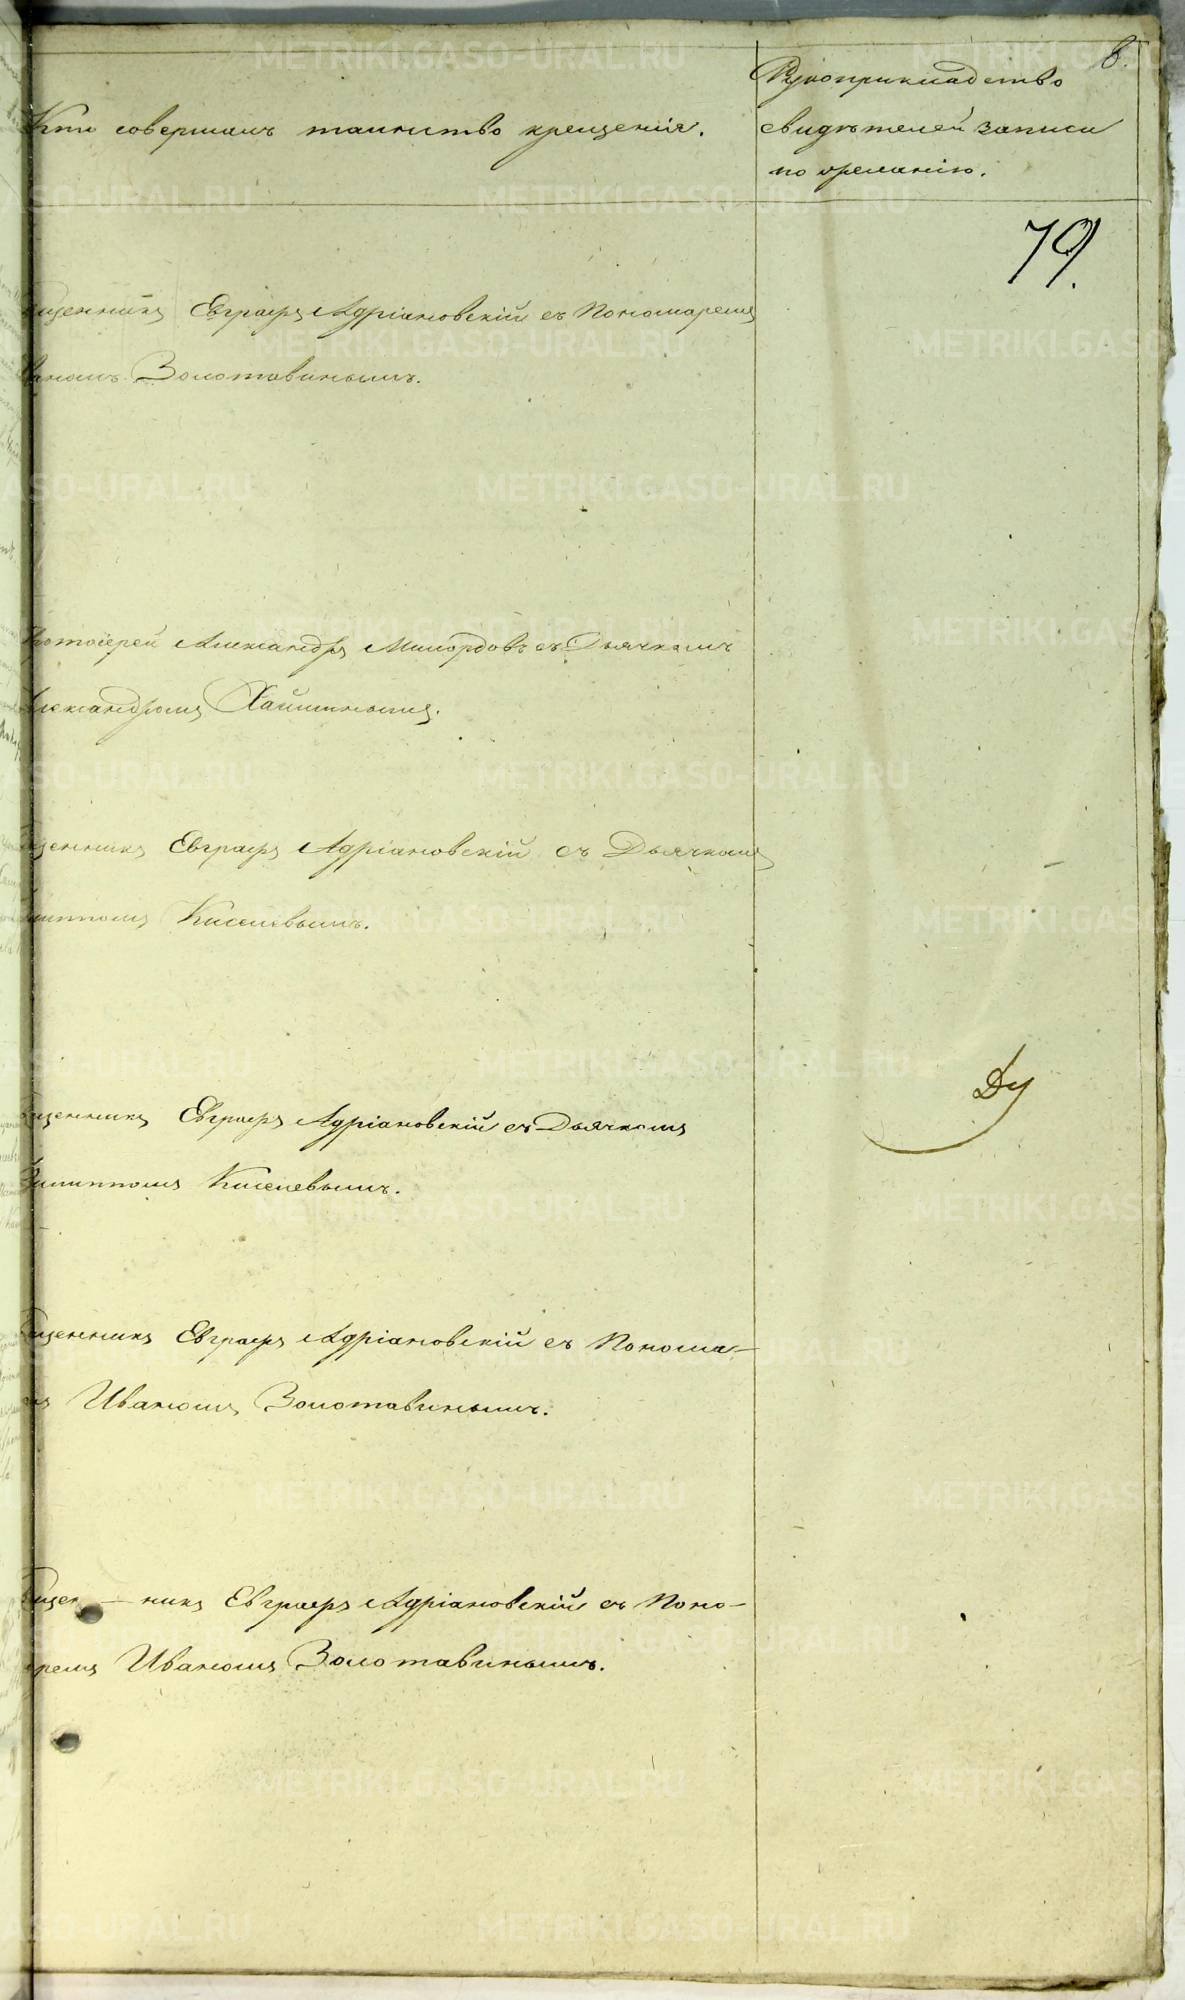 8.
Кто совершалъ таинство крещенія.
Рукоприкладство
свидѣтелей записи
по желанію.
79.
щенникъ Евграфъ Адріановскій съ Пономаремъ
ваномъ Золотавинымъ.
ротоіерей Александръ Милордовъ съ Дьячкомъ
лександромъ
щенникъ Евграфъ Адріановскій съ Дьячкомъ
липпомъ Киселевымъ.
щенникъ Евграфъ Адріановскій съ Дьячкомъ
Филиппомъ Киселевымъ.
щенникъ Евграфъ Адріановскій съ Понома-
Иваномъ Золотавинымъ.
щен-никъ Евграфъ Адріановскій съ Поно-
ремъ Иваномъ Золотавинымъ.
METRIKI.GASO-URAL.RU